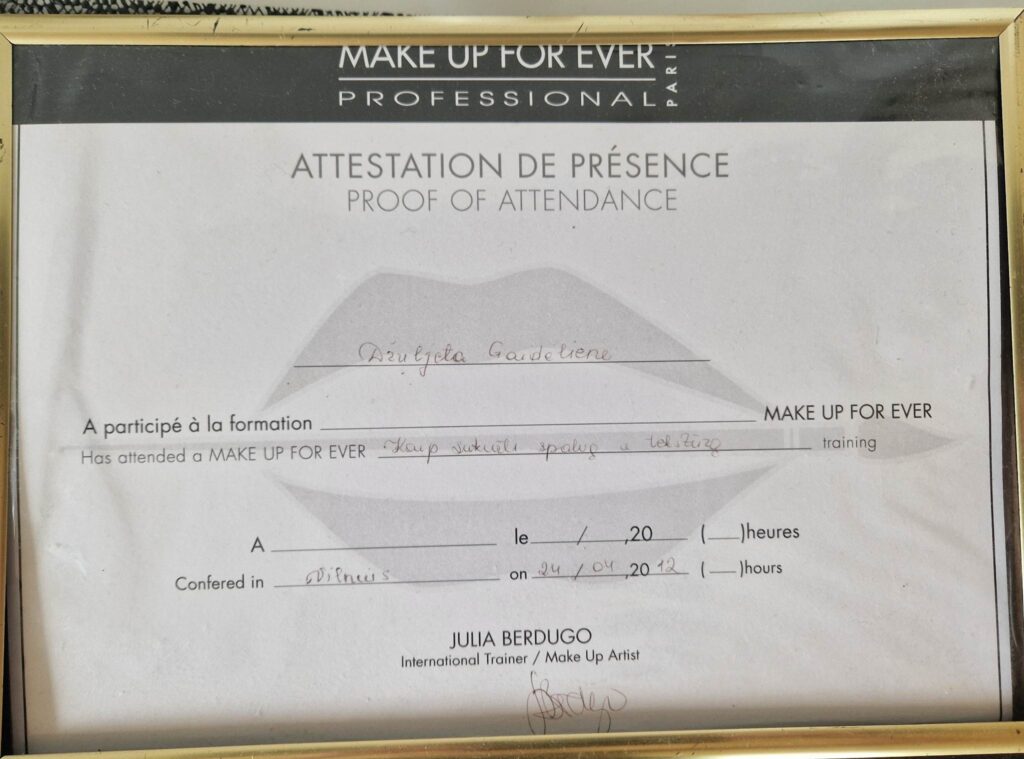 MAKE UP FOR EVER
PROFESSIONAL PARIS
ATTESTATION DE PRÉSENCE
PROOF OF ATTENDANCE
Džuljeta Gaideliene
A participé à la formation ____ MAKE UP FOR EVER
Has attended a MAKE UP FOR EVER Kaip sukurti spalvą ir tekstūrą training
A ____ le ___/___,20___ (___)heures
Confered in Vilnius on 24/04,2012 (___)hours
JULIA BERDUGO
International Trainer / Make Up Artist
JBerdugo